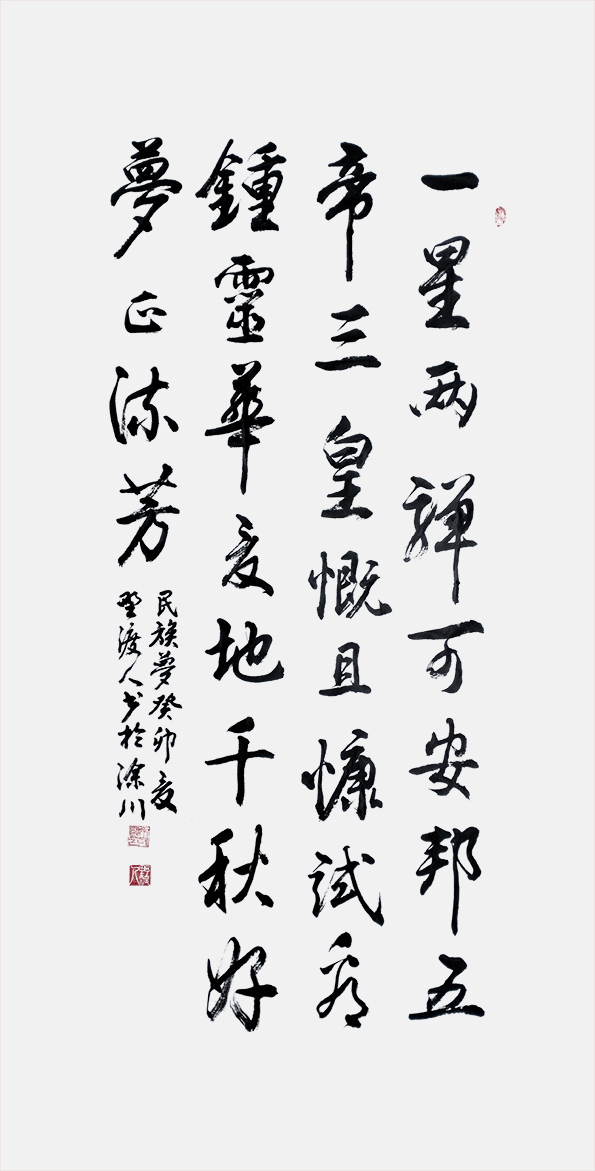 一星两彈可安邦五
帝三皇慨且慷試看
鍾靈華夏地千秋好
夢正流芳
民族夢癸卯夏
野渡人书於川